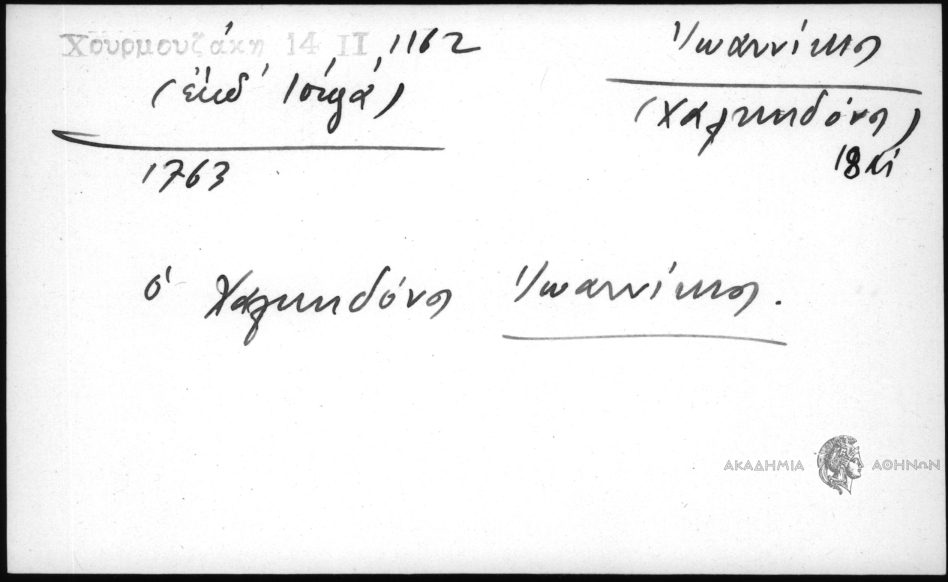 Χουρμουζάκη 14 II 1162
(ἐκδ Ἰόργα)
1763
Ἰωαννίκιος
(Χαλκηδόνος)
18 αἰ
ὁ Χαλκηδόνος Ἰωαννίκιος.
ΑΚΑΔΗΜΙΑ ΑΘΗΝΩΝ